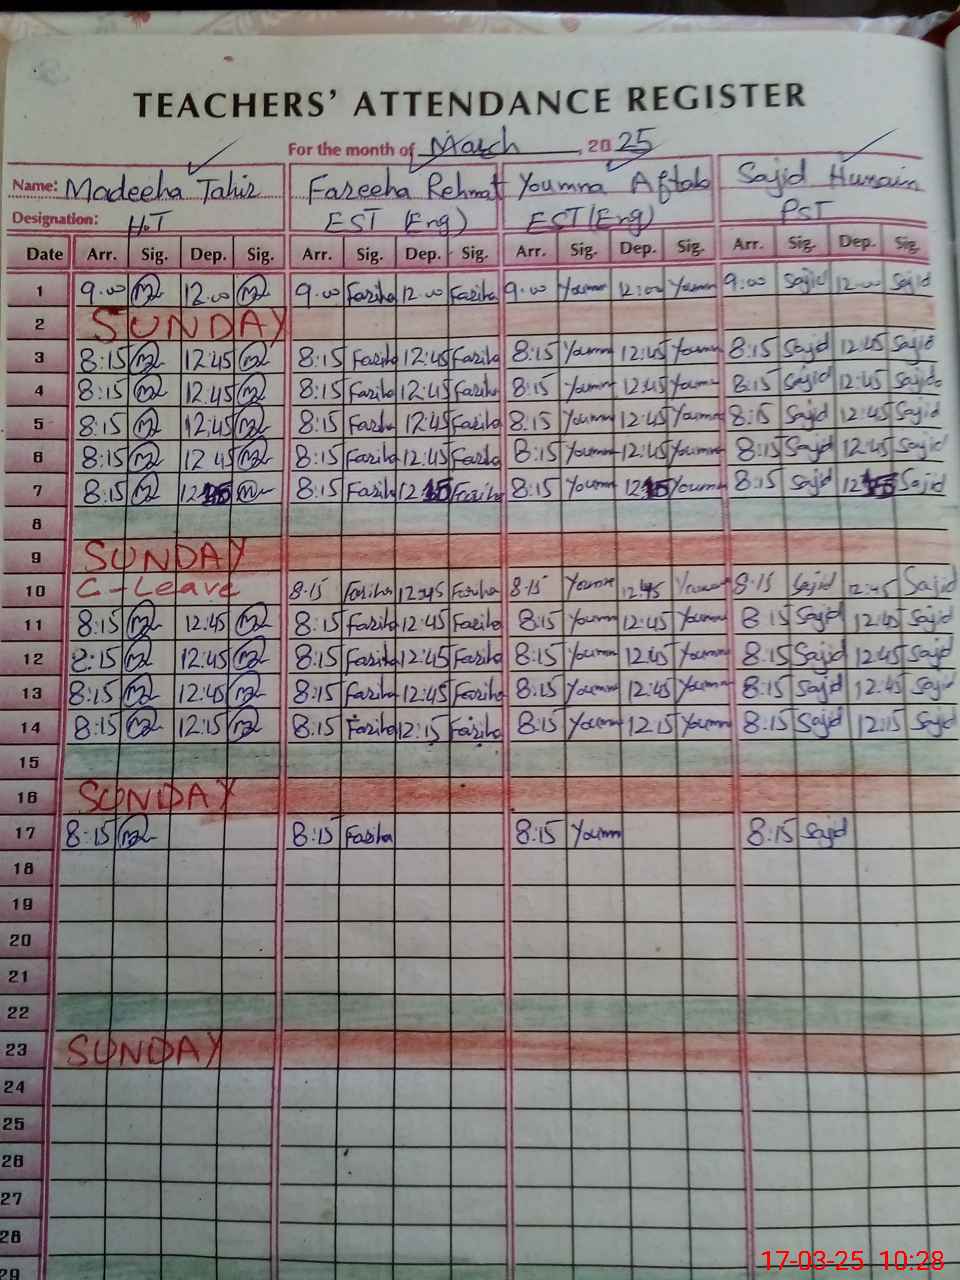 TEACHERS' ATTENDANCE REGISTER
For the month of March, 2025
Name: Madeeha Tahir Fareeha Rehmat Youmna Aftab Sajid Hunain
Designation: H.T EST (Eng) EST (Eng) PST
Date Arr. Sig. Dep. Sig. Arr. Sig. Dep. Sig. Arr. Sig. Dep. Sig. Arr. Sig. Dep. Sig.
1 9.00 12.00 9.00 Fariha 12.00 Fariha 9.00 Youmn 12:00 Youmn 9:00 Sajid 12:00 Sajid
2 SUNDAY
3 8:15 12:45 8:15 Fariha 12:45 Fariha 8:15 Youmn 12:45 Youmn 8:15 Sajid 12:45 Sajid
4 8:15 12:45 8:15 Fariha 12:45 Fariha 8:15 Youmn 12:45 Youmn 8:15 Sajid 12:45 Sajid
5 8:15 12:45 8:15 Fariha 12:45 Fariha 8:15 Youmn 12:45 Youmn 8:15 Sajid 12:45 Sajid
6 8:15 12 45 8:15 Fariha 12:45 Fariha 8:15 Youmn 12:45 Youmn 8:15 Sajid 12:45 Sajid
7 8:15 12 15 8:15 Fariha 12 15 Fariha 8:15 Youmn 12 15 Youmn 8:15 Sajid 12 15 Sajid
8
9 SUNDAY
10 C-Leave 8:15 Fariha 12:45 Fariha 8:15 Youmn 12:45 Youmn 8:15 Sajid 12:45 Sajid
11 8:15 12:45 8:15 Fariha 12:45 Fariha 8:15 Youmn 12:45 Youmn 8 15 Sajid 12:45 Sajid
12 8:15 12:45 8:15 Fariha 12:45 Fariha 8:15 Youmn 12:45 Youmn 8:15 Sajid 12:45 Sajid
13 8:15 12:45 8:15 Fariha 12:45 Fariha 8:15 Youmn 12:45 Youmn 8:15 Sajid 12:45 Sajid
14 8:15 12:15 8:15 Fariha 12:15 Fariha 8:15 Youmn 12:15 Youmn 8:15 Sajid 12:15 Sajid
15
16 SUNDAY
17 8:15 8:15 Fariha 8:15 Youmn 8:15 Sajid
18
19
20
21
22
23 SUNDAY
24
25
26
27
28
29
17-03-25 10:28